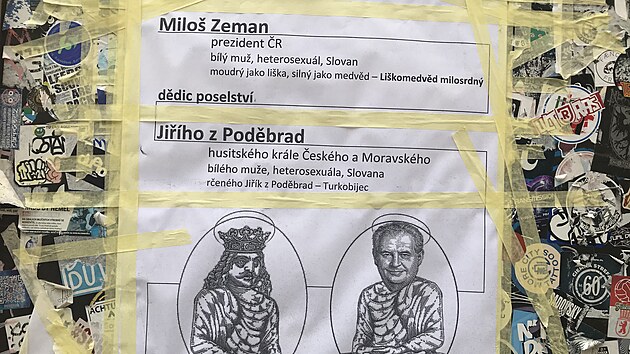 Miloš Zeman
prezident ČR
bílý muž, heterosexuál, Slovan
moudrý jako liška, silný jako medvěd – Liškomedvěd milosrdný
dědic poselství
Jiřího z Poděbrad
husitského krále Českého a Moravského
bílého muže, heterosexuála, Slovana
rčeného Jiřík z Poděbrad – Turkobijec
THE CITY
60
ACHTU